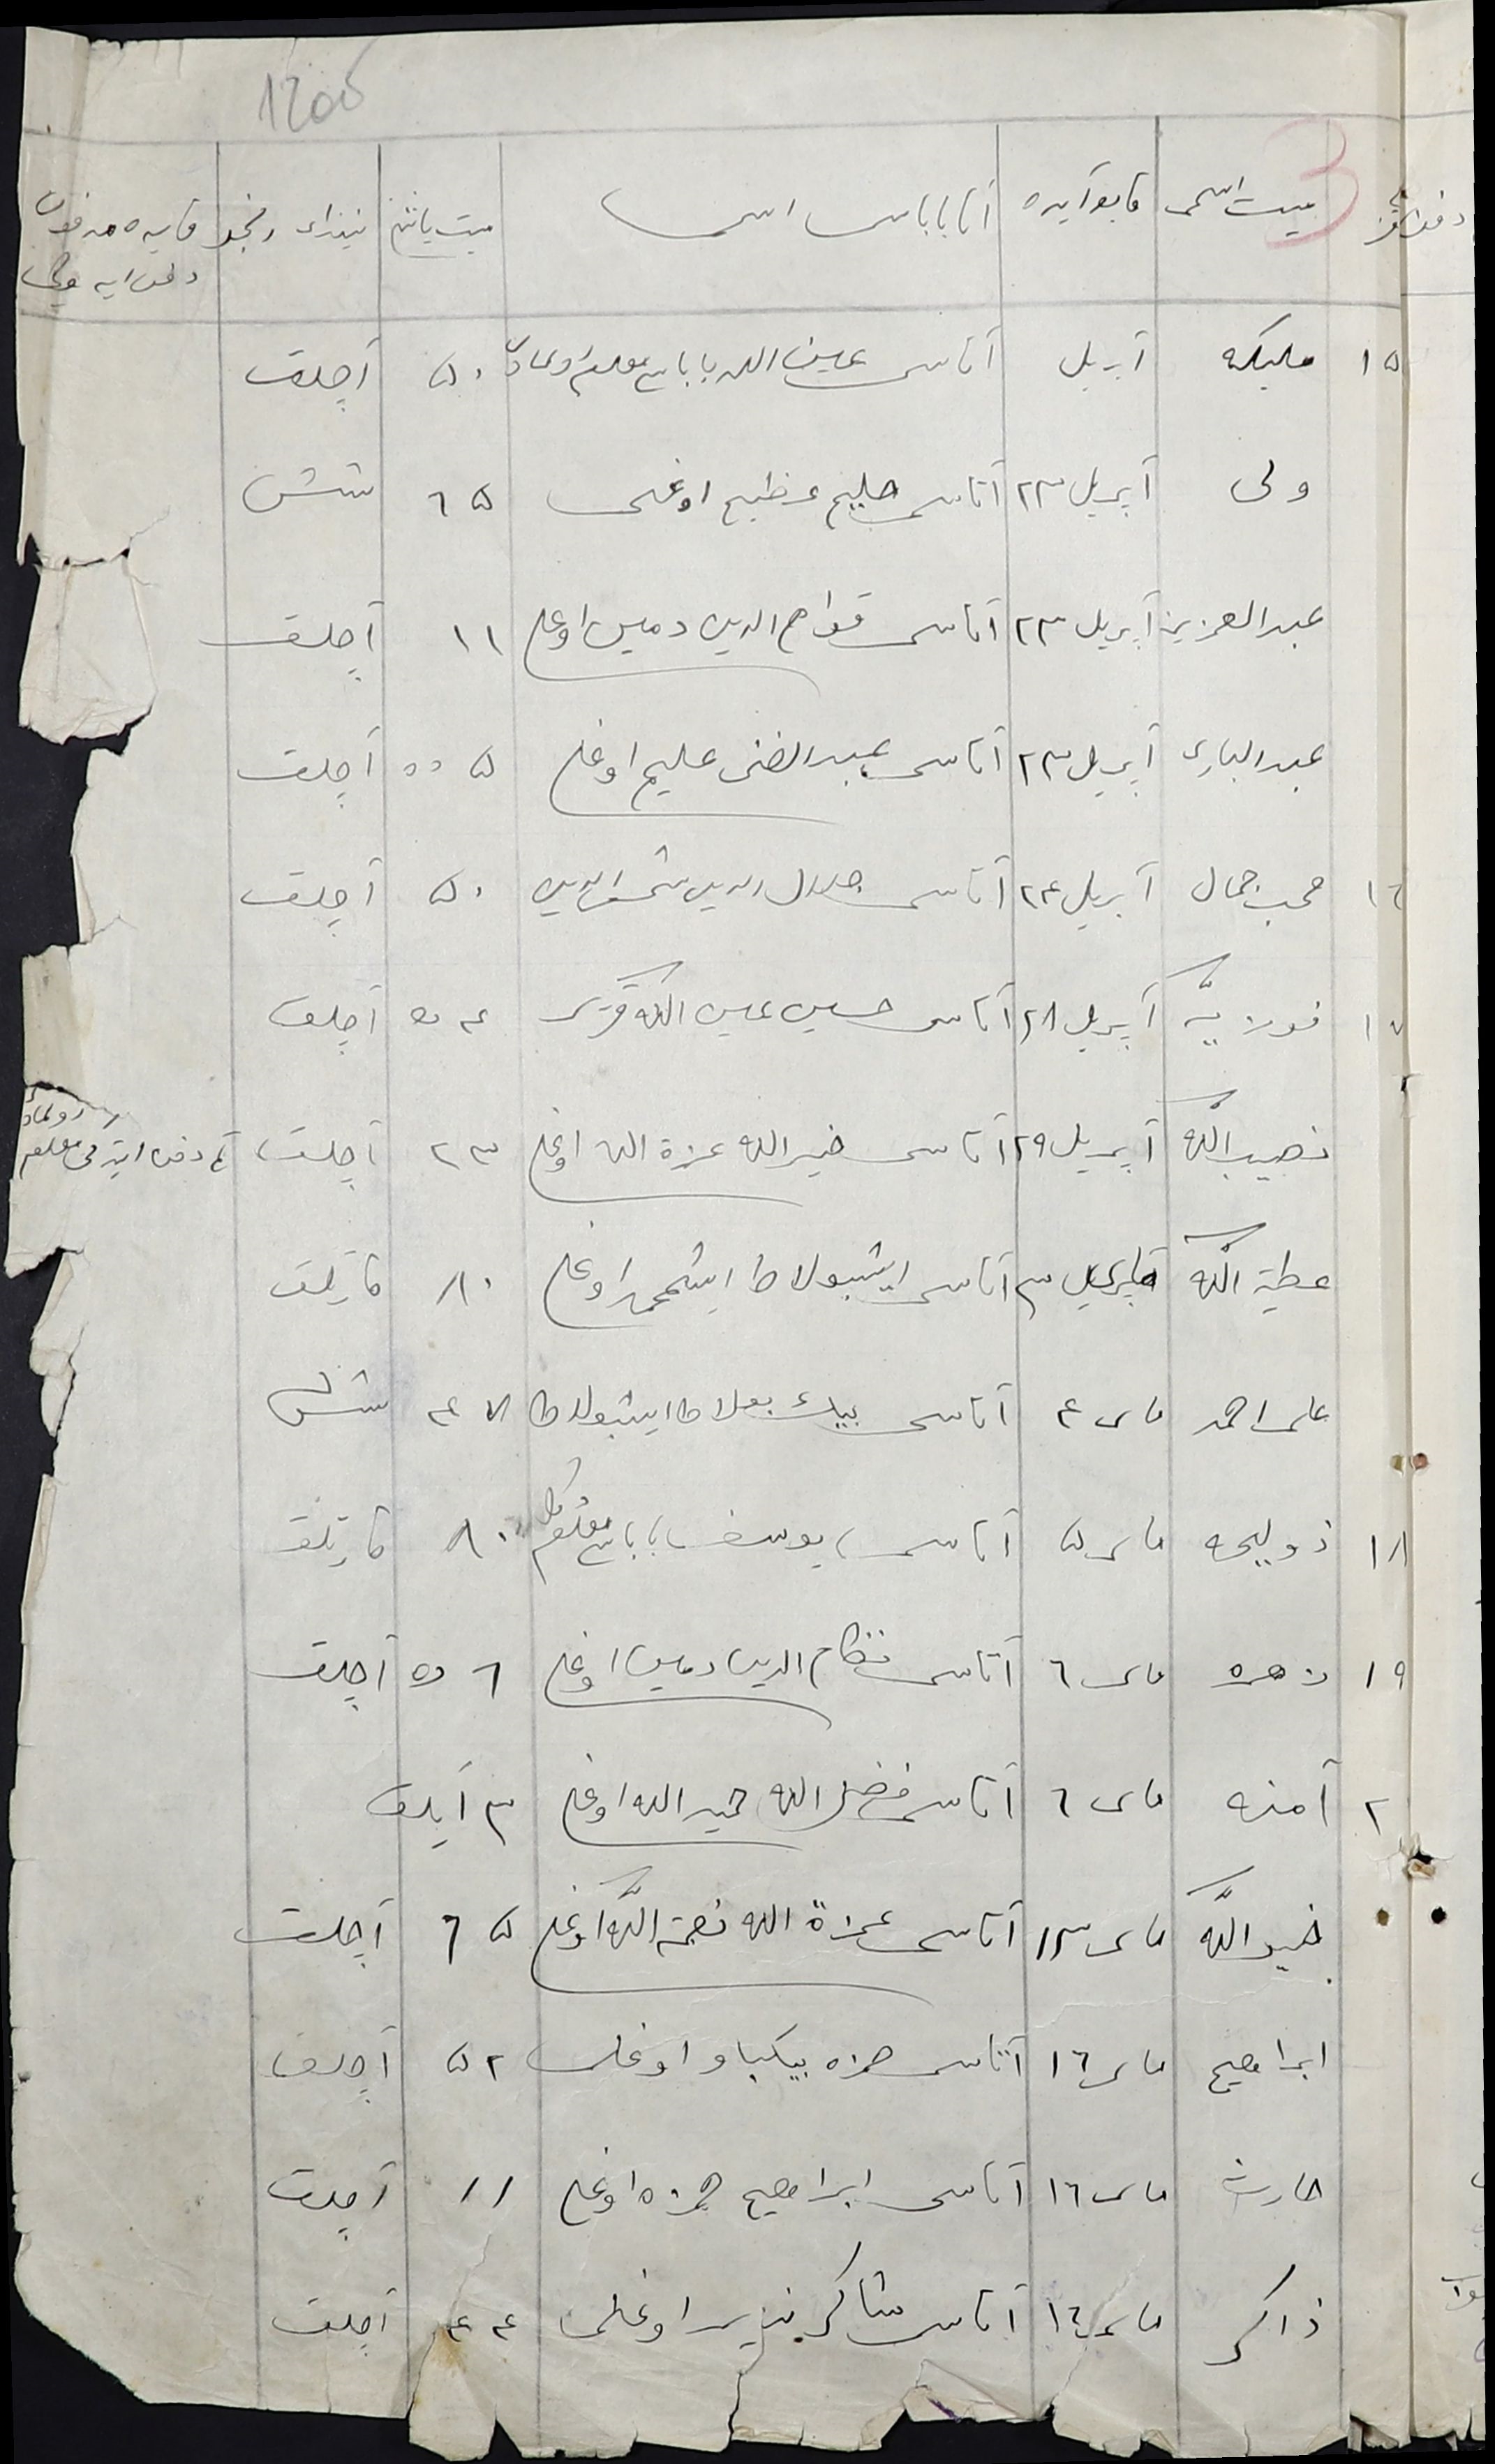 1200
3
میت اسمی قایو آیده آتا باباسی اسمی میت یاشی نیندای رنجو قایده مدفون
١٥ ملیکه آپریل آتاسی عین الله باباسی معلوم اولمادی ٥٠ آچلق
ولی آپریل ٢٣ آتاسی حلیم عظیم اوغلی ٦٥ شش
عبدالعزیز آپریل ٢٣ آتاسی قوام الدین دمین اوغلی ١١ آچلق
عبدالباری آپریل ٢٣ آتاسی عبدالغنی علیم اوغلی ٥٥ آچلق
١٦ محب جمال آپریل ٢٤ آتاسی جلال الدین شمس الدین ٥٠ آچلق
١٧ آپریل ٢٨ آتاسی حسین عین الله قزی آچلق
نصیب الله آپریل ٢٩ آتاسی خیرالله عزة الله اوغلی ٢٣ آچلق
عطیة الله ٣ آتاسی ایشبولاط ایشمحمد اوغلی ٨٠ قارتلق
علی احمد مای ٤ آتاسی بیک بولاط ایشبولاط ٤٧ شش
١٨ ذولیحه مای ٥ آتاسی یوسف باباسی معلوم توگل ٨٠ قارتلق
١٩ زهره مای ٦ آتاسی نظام الدین دمین اوغلی ٦ آچلق
٢ آمنه مای ٦ آتاسی فضل الله حمید الله اوغلی ٣ آیلق
خیرالله مای ١٣ آتاسی عزة الله نعمة الله اوغلی ٦٥ آچلق
ابراهیم مای ١٦ آتاسی حمزه بیکباو اوغلی ٥٢ آچلق
حارث مای ١٦ آتاسی ابراهیم حمزه اوغلی ١١ آچلق
ذاکر مای ١٦ آتاسی شاکر نذیر اوغلی ٤٤ آچلق